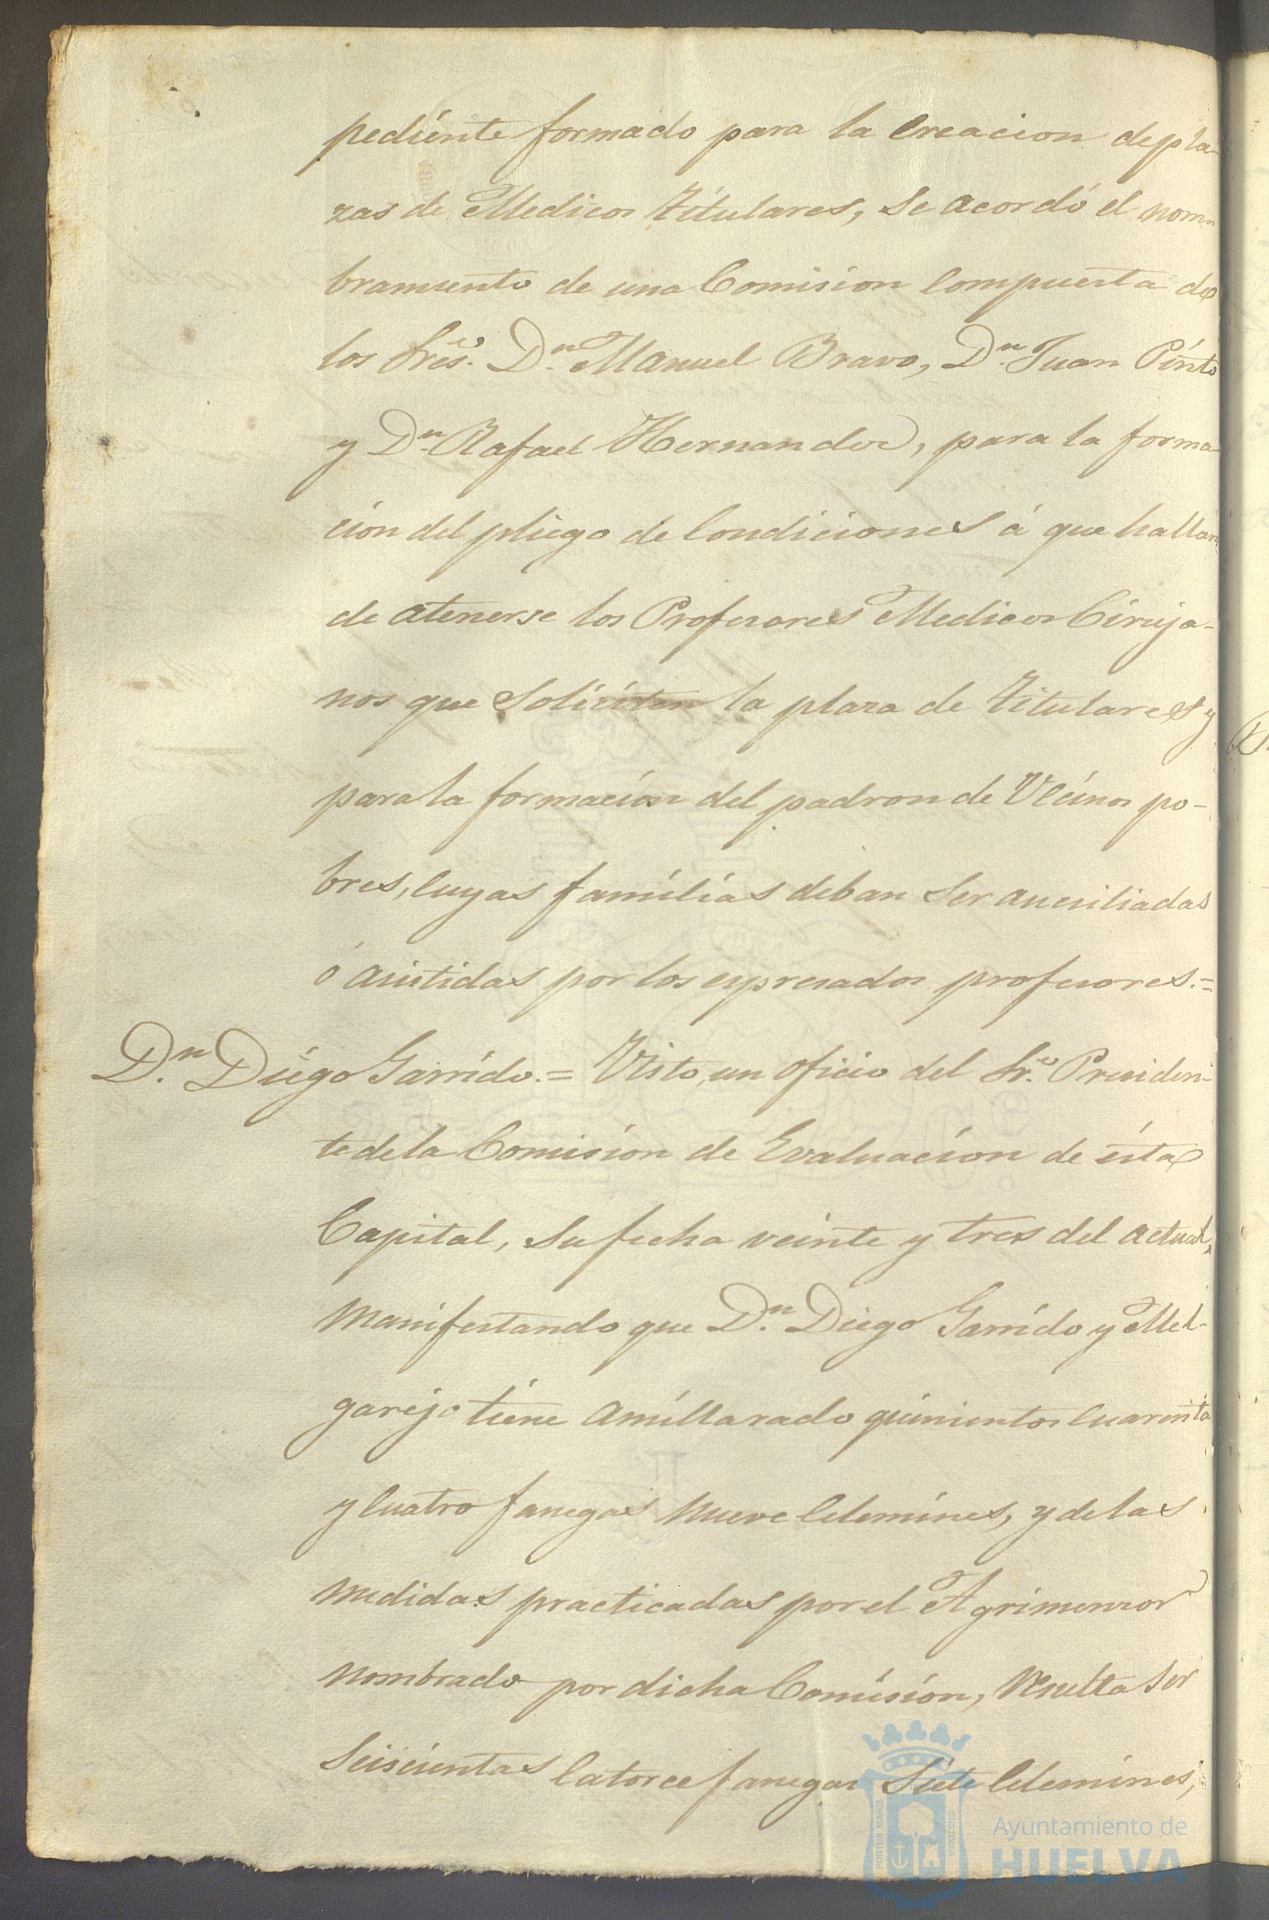 pediente formado para la creacion de pla-
zas de Medicos titulares, se acordó el nom-
bramiento de una Comision compuesta de
los Sres. Dn. Manuel Bravo, Dn. Juan Pinto
y Dn. Rafael Hernandez, para la forma-
cion del pliego de condiciones á que hallan
de atenerse los Profesores Medicos Ciruja-
nos que soliciten la plaza de titulares y
para la formacion del padron de Vecinos po-
bres, cuyas familias deban ser aucsiliadas
ó asistidas por los espresados profesores.=
Dn. Diego Garrido.= Visto, un oficio del Sr. Presiden-
te de la Comision de Evaluacion de ésta
Capital, su fecha veinte y tres del actual,
manifestando que Dn. Diego Garrido y Mel-
garejo tiene amillarado quinientos cuarenta
y cuatro fanegas nueve celemines, y de las
medidas practicadas por el Agrimensor
nombrado por dicha Comision, resulta ser
seiscientas catorce fanegas siete celemines,
PORTUS MARIS
CUSTODIA
Ayuntamiento de
HUELVA